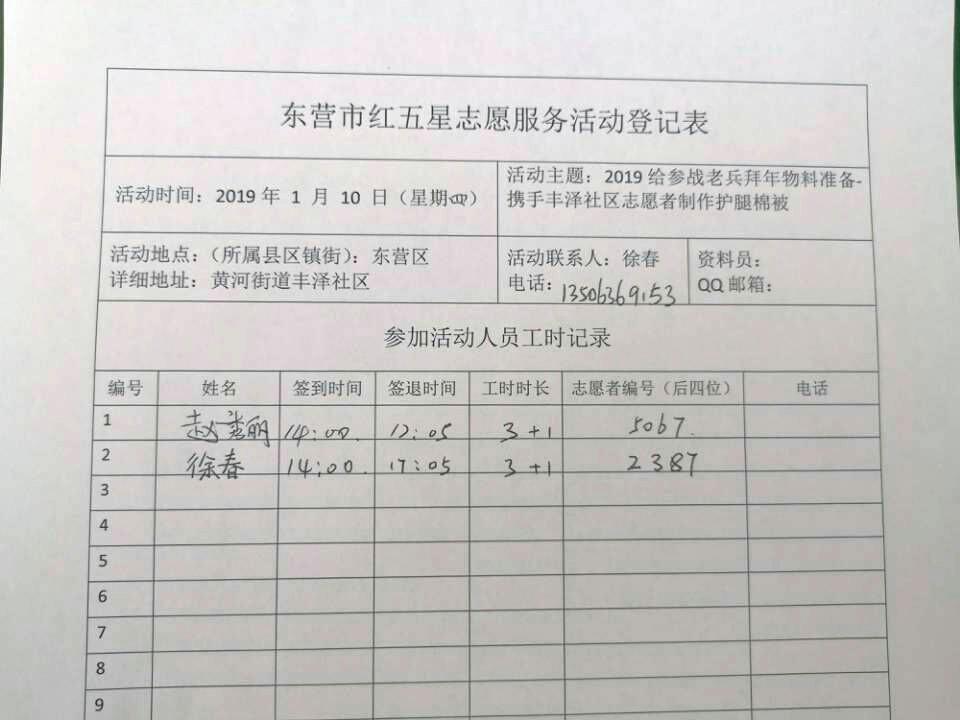 东营市红五星志愿服务活动登记表
活动时间：2019 年 1 月 10 日（星期四）
活动主题：2019 给参战老兵拜年物料准备-
携手丰泽社区志愿者制作护腿棉被
活动地点：（所属县区镇街）：东营区
详细地址：黄河街道丰泽社区
活动联系人：徐春
电话：13506369153
资料员：
QQ 邮箱：
参加活动人员工时记录
编号 姓名 签到时间 签退时间 工时时长 志愿者编号（后四位） 电话
1 赵 丽 14:00. 17:05 3+1 5067.
2 徐春 14:00. 17:05 3+1 2387
3
4
5
6
7
8
9